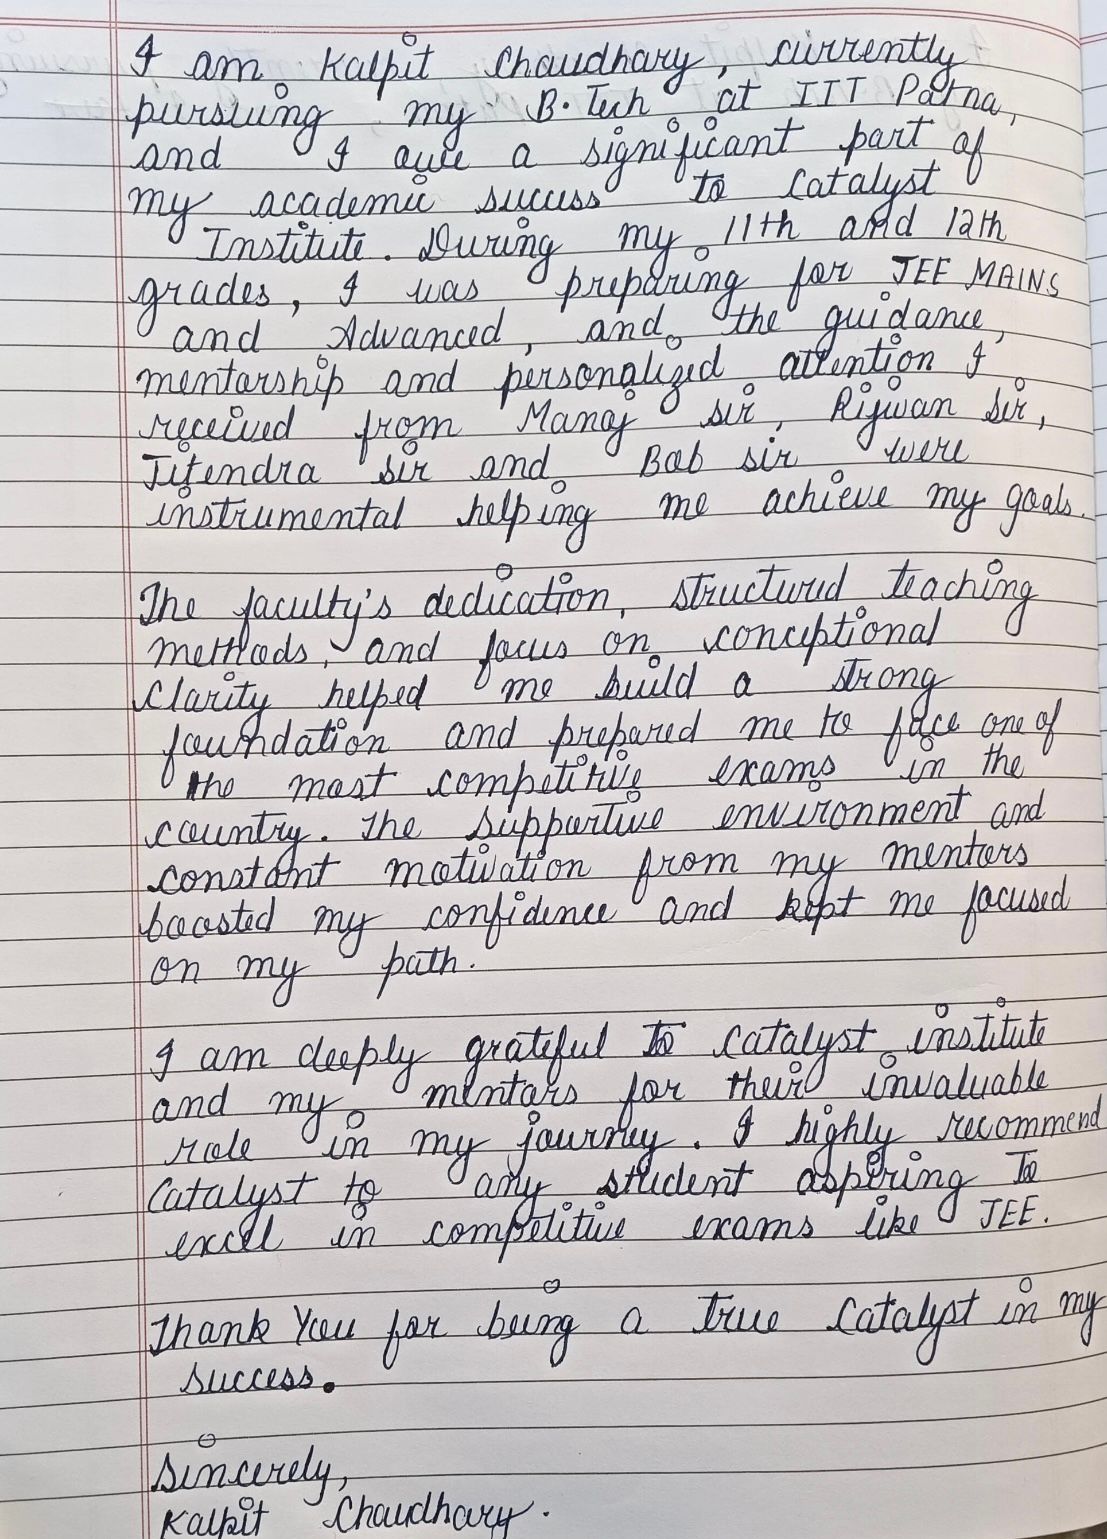 I am Kalpit Chaudhary, currently
pursuing my B.Tech at IIT Patna,
and I owe a significant part of
my academic success to Catalyst
Institute. During my 11th and 12th
grades, I was preparing for JEE MAINS
and Advanced, and the guidance,
mentorship and personalized attention I
received from Manoj sir, Rijwan sir,
Jitendra sir and Bob sir were
instrumental helping me achieve my goals.
The faculty's dedication, structured teaching
methods, and focus on conceptional
clarity helped me build a strong
foundation and prepared me to face one of
the most competitive exams in the
country. The supportive environment and
constant motivation from my mentors
boosted my confidence and kept me focused
on my path.
I am deeply grateful to Catalyst institute
and my mentors for their invaluable
role in my journey. I highly recommend
Catalyst to any student aspiring to
excel in competitive exams like JEE.
Thank You for being a true Catalyst in my
success.
Sincerely,
Kalpit Chaudhary.